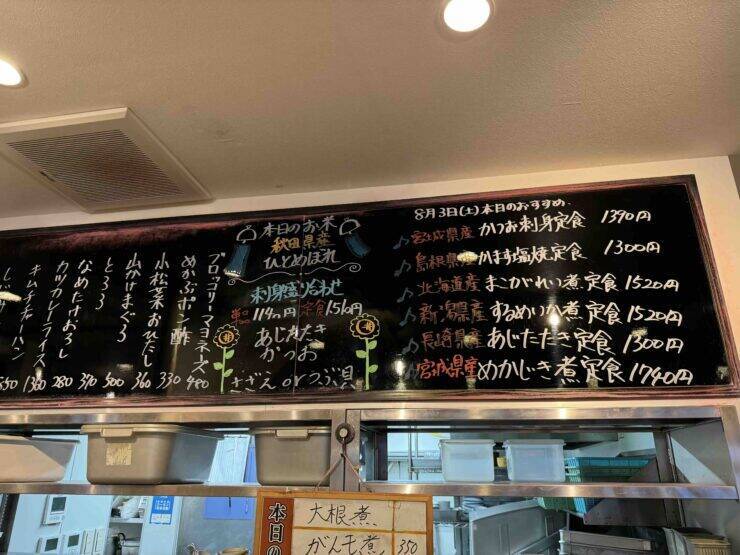 8月3日(土)本日のおすすめ
宮城県産 かつお刺身定食 1390円
島根県産 かます塩焼定食 1300円
北海道産 まこがれい煮定食 1520円
新潟県産 するめいか煮定食 1520円
長崎県産 あじたたき定食 1300円
宮城県産 めかじき煮定食 1740円
本日のお米
秋田県産
ひとめぼれ
刺身盛り合わせ
単品 1190円 定食 1510円
あじたたき
かつお
さざえorつぶ貝
ブロッコリーマヨネーズ 480
めかぶポン酢 330
小松菜おひたし 360
山かけまぐろ 500
とろろ 390
なめたけおろし 280
カツカレーライス 1360
キムチチャーハン
本日の
大根煮
がんも煮 350